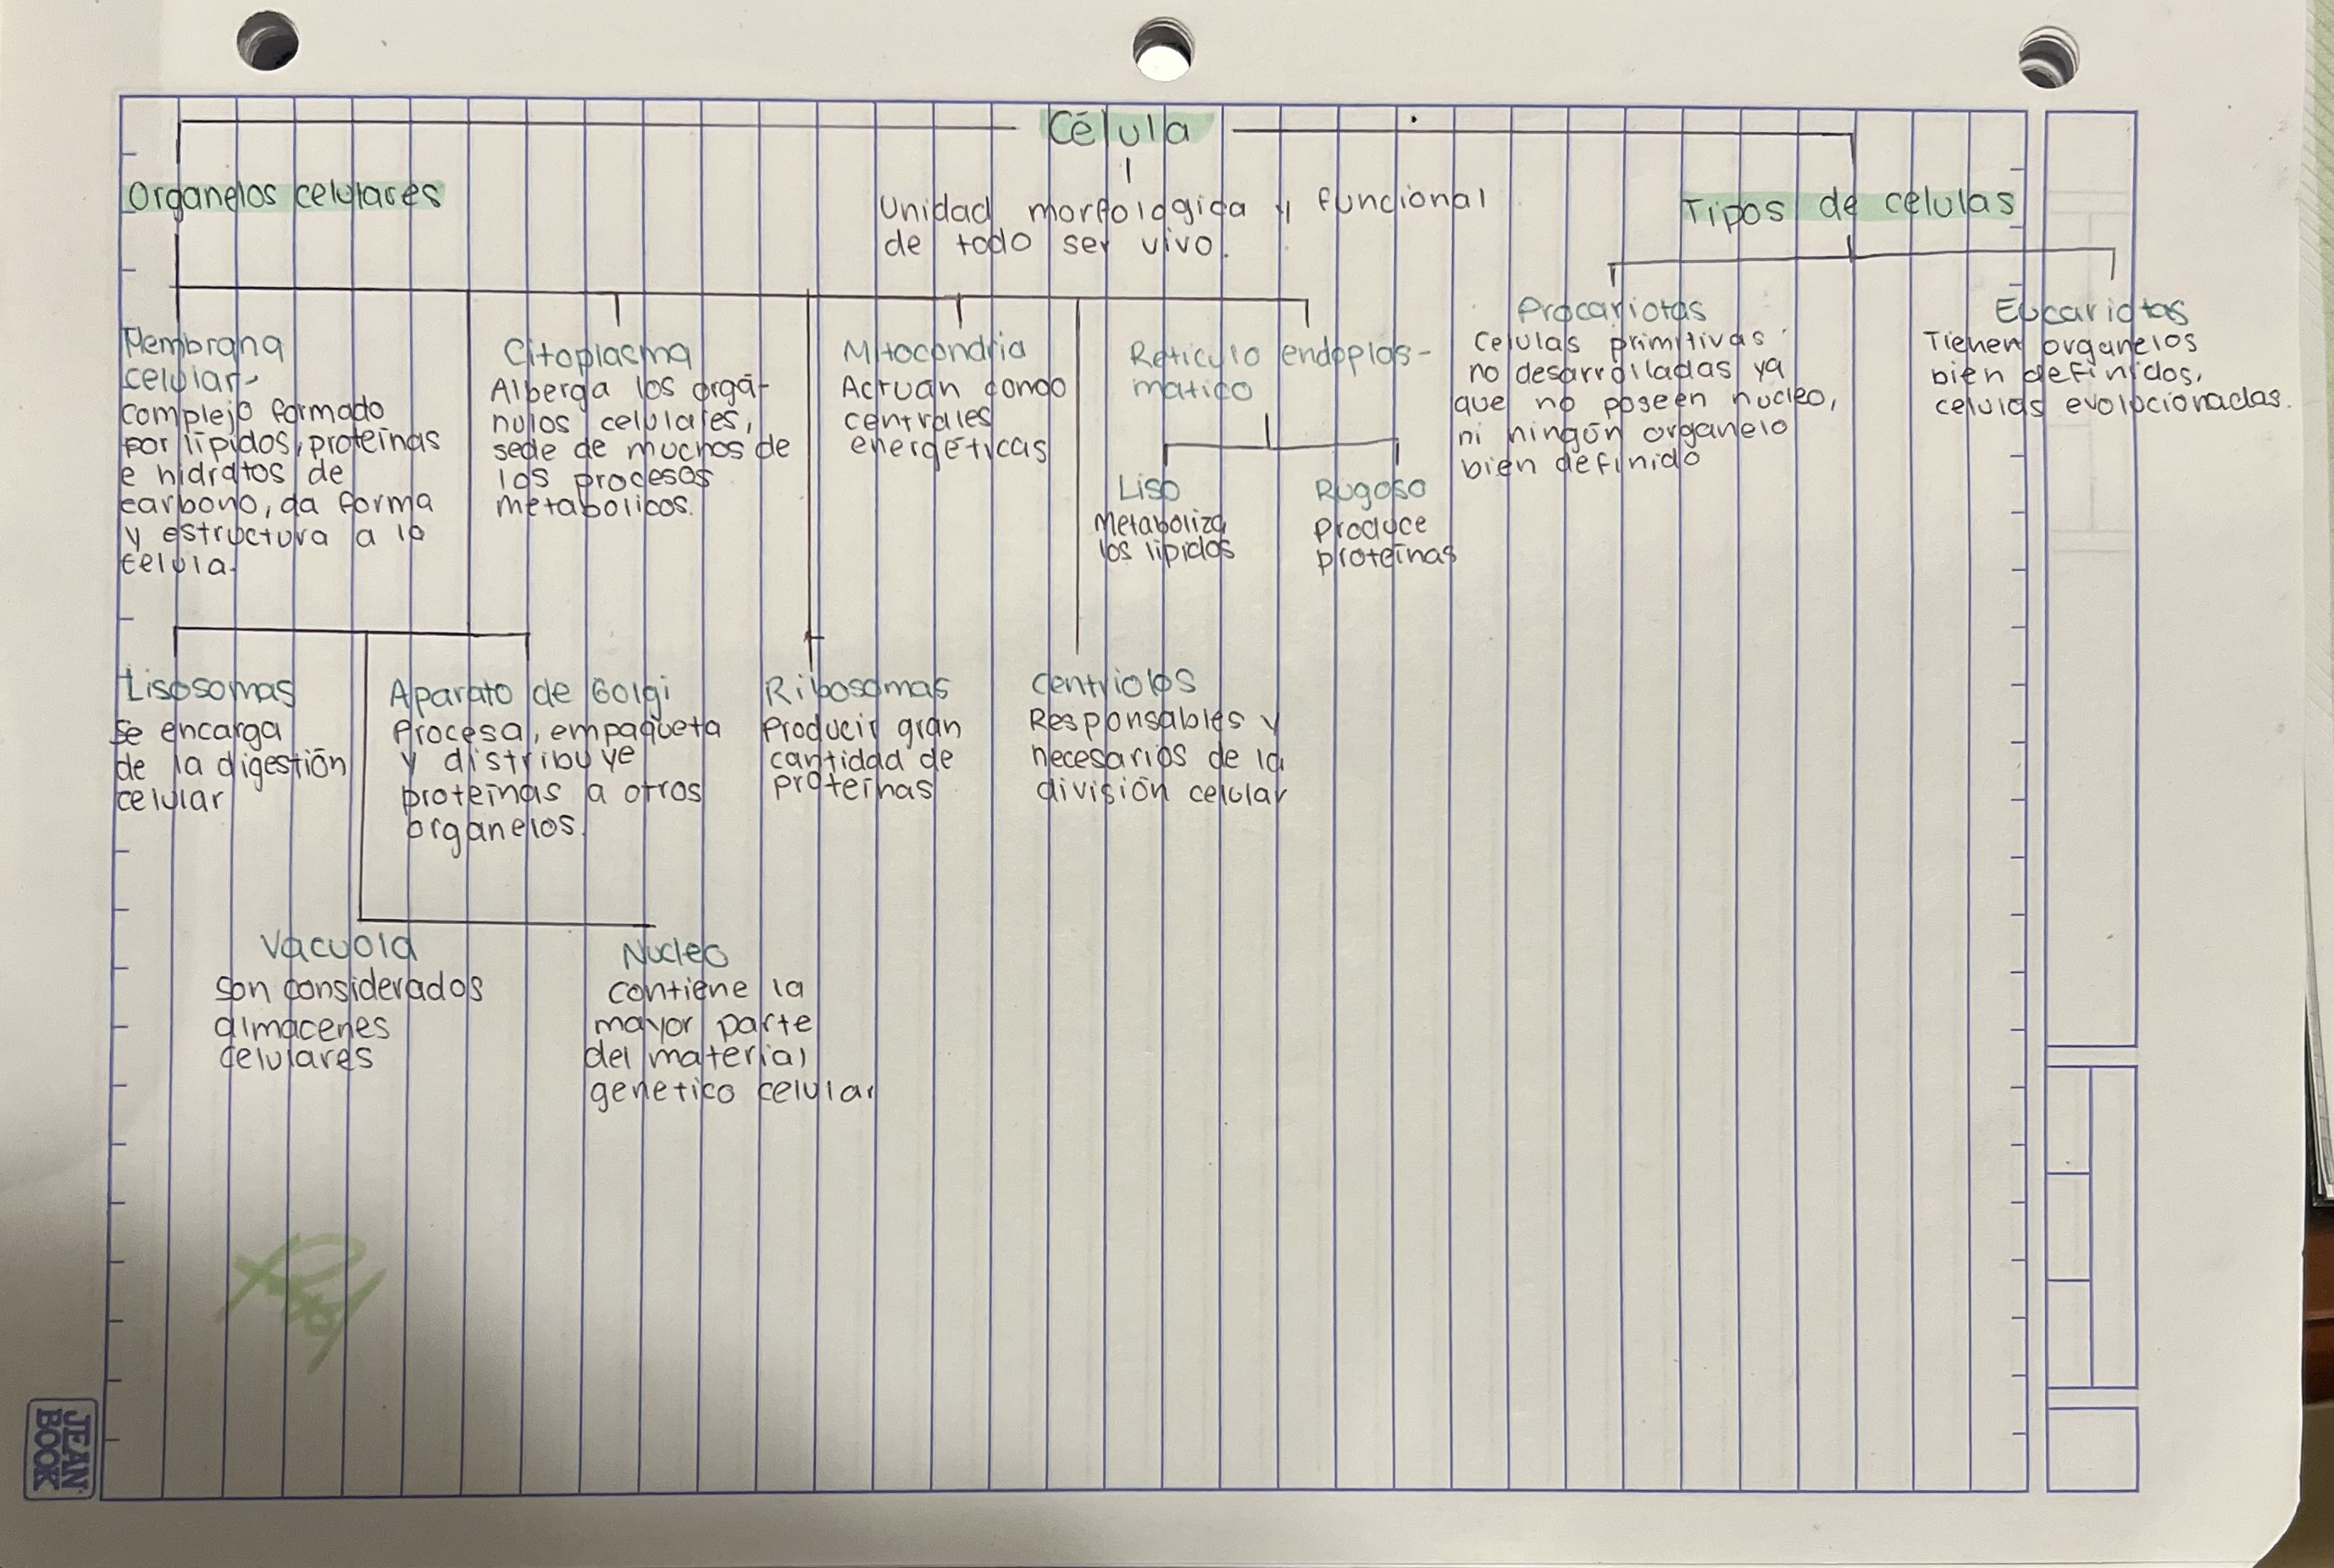 Célula
Unidad morfologica y funcional
de todo ser vivo.
Organelos celulares
Membrana
celular-
complejo formado
por lípidos, proteínas
e hidratos de
carbono, da forma
y estructura a la
celula.
Citoplasma
Alberga los orgá-
nulos celulares,
sede de muchos de
los procesos
metabolicos.
Mitocondria
Actuan como
centrales
energéticas
Reticulo endoplas-
matico
Liso
Metaboliza
los lipidos
Rugoso
Produce
proteínas
Lisosomas
se encarga
de la digestión
celular
Aparato de Golgi
Procesa, empaqueta
y distribuye
proteínas a otros
organelos.
Ribosomas
Producir gran
cantidad de
proteínas
Centriolos
Responsables y
necesarios de la
división celular
Vacuola
son considerados
almacenes
celulares
Nucleo
contiene la
mayor parte
del material
genetico celular
Tipos de celulas
Procariotas
Celulas primitivas
no desarrolladas ya
que no poseen nucleo,
ni ningún organelo
bien definido
Eucariotas
Tienen organelos
bien definidos,
celulas evolucionadas.
JEAN
BOOK